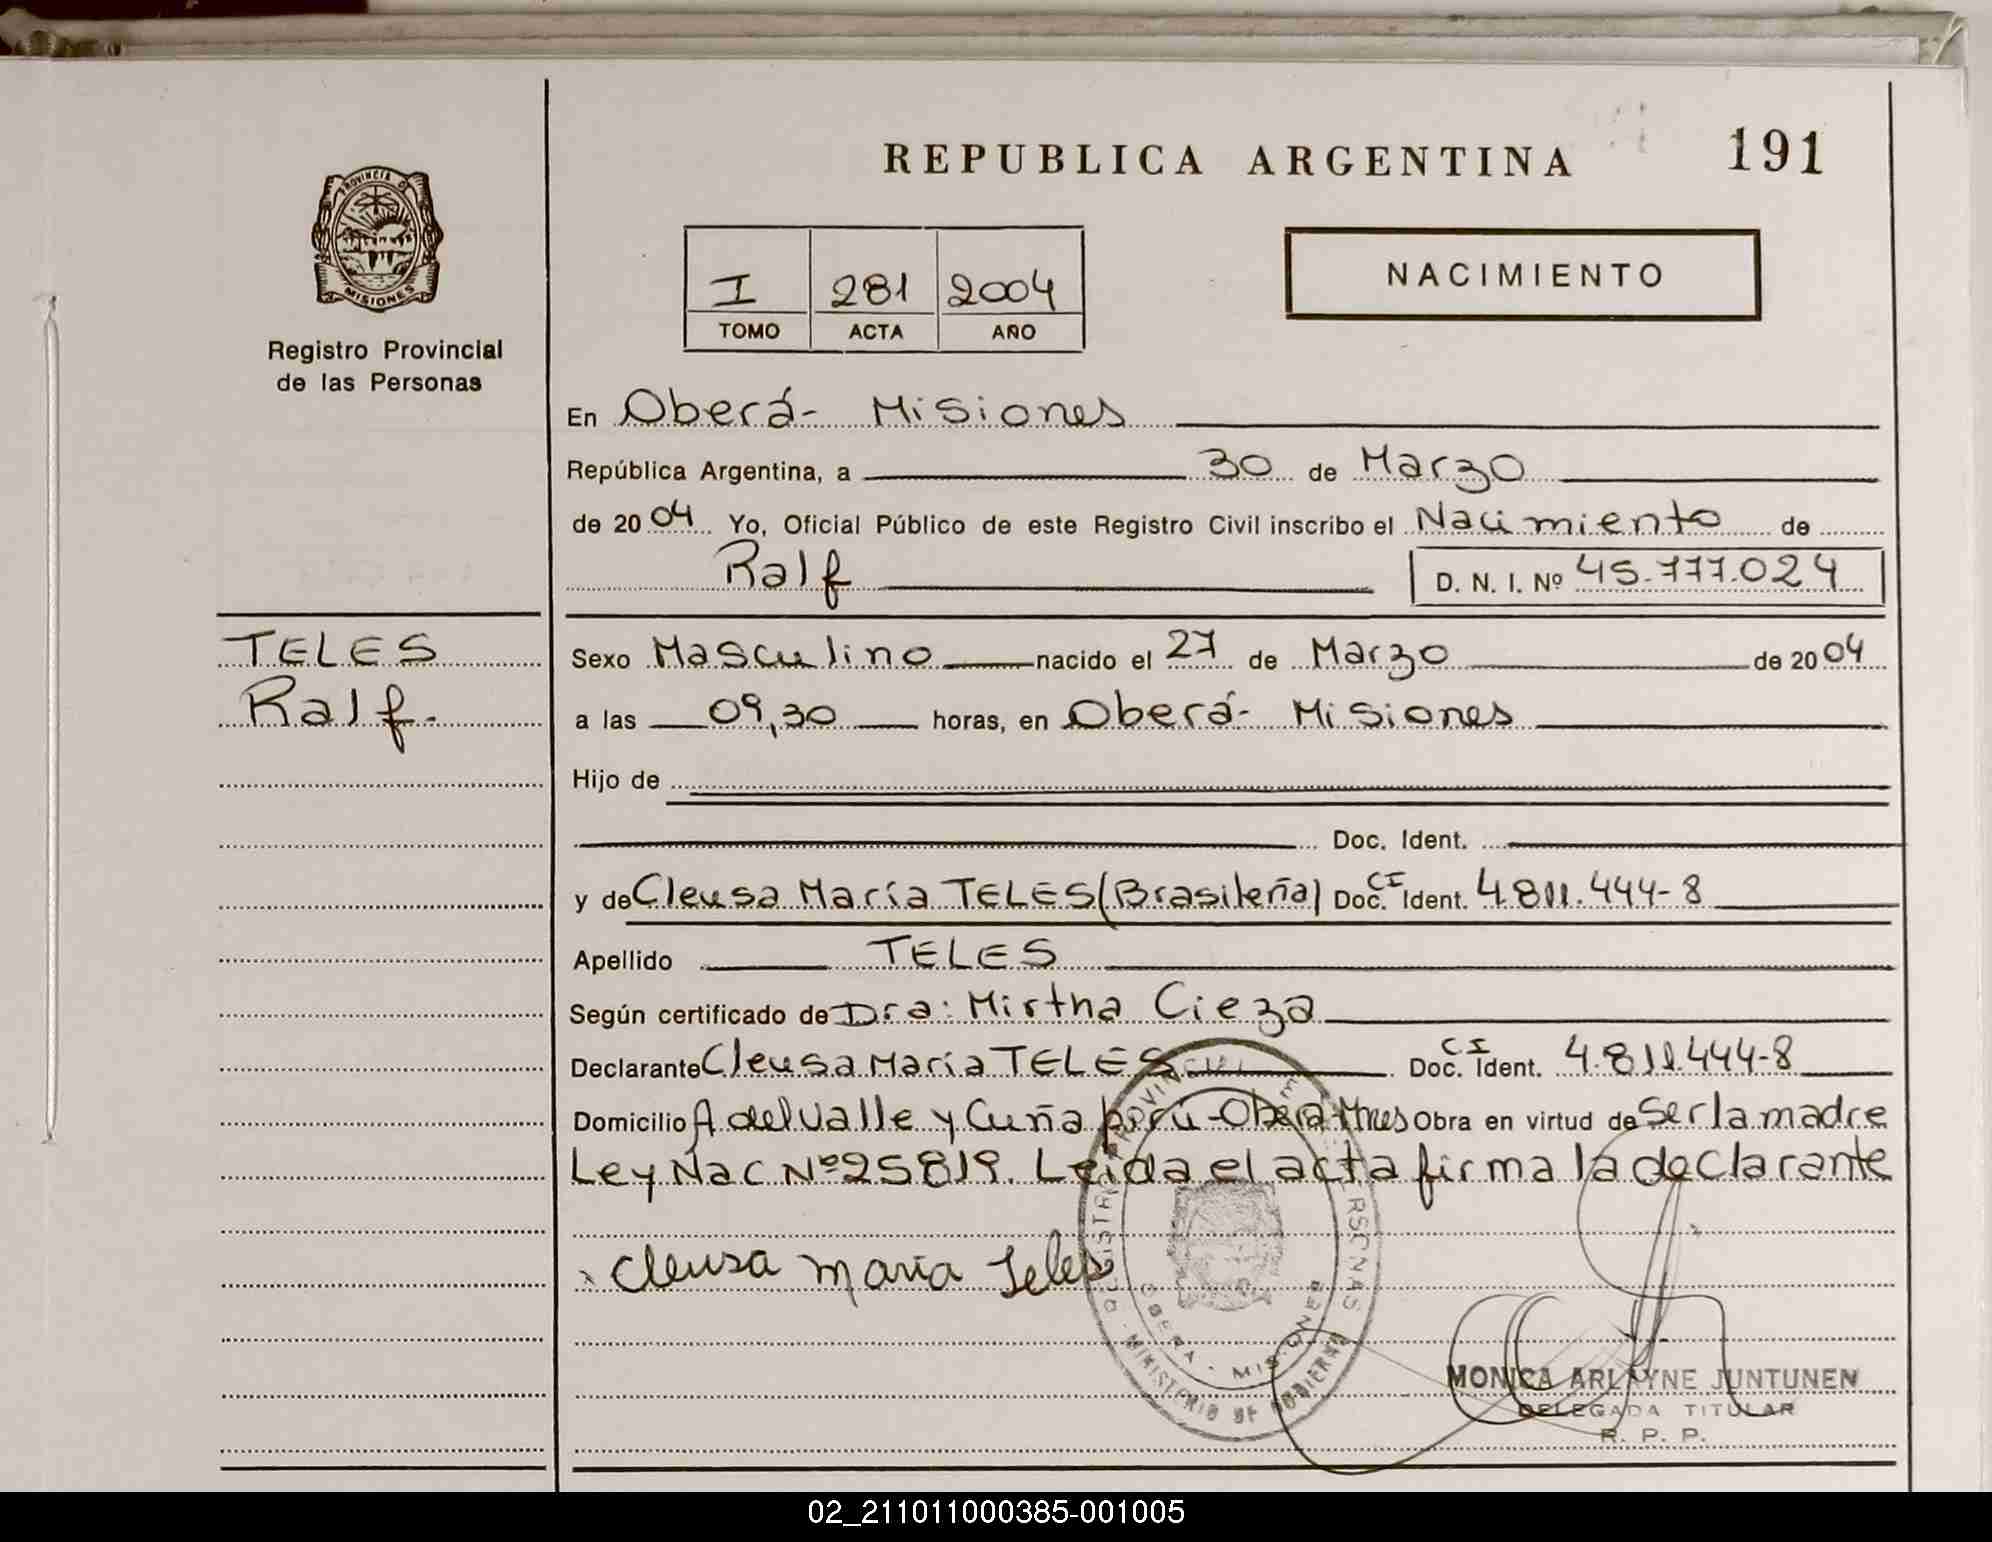 REPUBLICA ARGENTINA
191
PROVINCIA D
MISIONES
Registro Provincial
de las Personas
I 281 2004
TOMO ACTA AÑO
NACIMIENTO
En Oberá- Misiones
República Argentina, a 30 de Marzo
de 2004 Yo, Oficial Público de este Registro Civil inscribo el Nacimiento de
Ralf D. N. I. Nº 45.777.024
TELES
Ralf.
Sexo Masculino nacido el 27 de Marzo de 2004
a las 09,30 horas, en Oberá- Misiones
Hijo de
Doc. Ident.
y de Cleusa María TELES (Brasileña) Doc. CI Ident. 4.811.444-8
Apellido TELES
Según certificado de Dra: Mirtha Cieza
Declarante Cleusa María TELES Doc. CI Ident. 4.811.444-8
Domicilio A del Valle y Cuña - Oberá-Mnes Obra en virtud de Ser la madre
Ley Nac Nº 25819. Leida el acta firma la declarante
Cleusa Maria Teles
OBERA - MISIONES
MINISTERIO DE GOBIERNO
MONICA ARLAYNE JUNTUNEN
DELEGADA TITULAR
R. P. P.
02_211011000385-001005